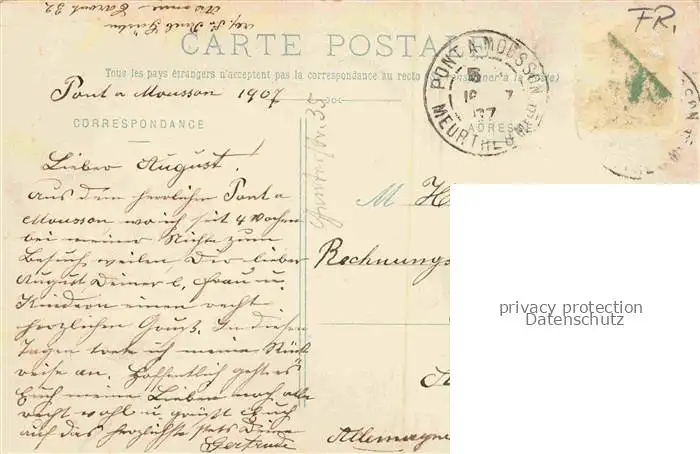 CARTE POSTALE
Tous les pays étrangers n'acceptent pas la correspondance au recto
Pont a Mousson 1907
CORRESPONDANCE
ADRESSE
PONT A MOUSSON
MEURTHE
FR.
Lieber August!
Aus dem herrlichen Pont a
Mousson, wo ich seit 4 Wochen
bei meiner Nichte zum
Besuch weilen, Dir lieber
August, Deiner l. Frau u.
Kindern einen recht
herzlichen Gruß. In diesen
Tagen trete ich meine Rück
reise an. Hoffentlich geht es
Euch meine Lieben noch alle
recht wohl u. grüßt Euch
auf das herzlichste stets Deine
Gertrude
M H
Rechnungs
Allemagne
privacy protection
Datenschutz